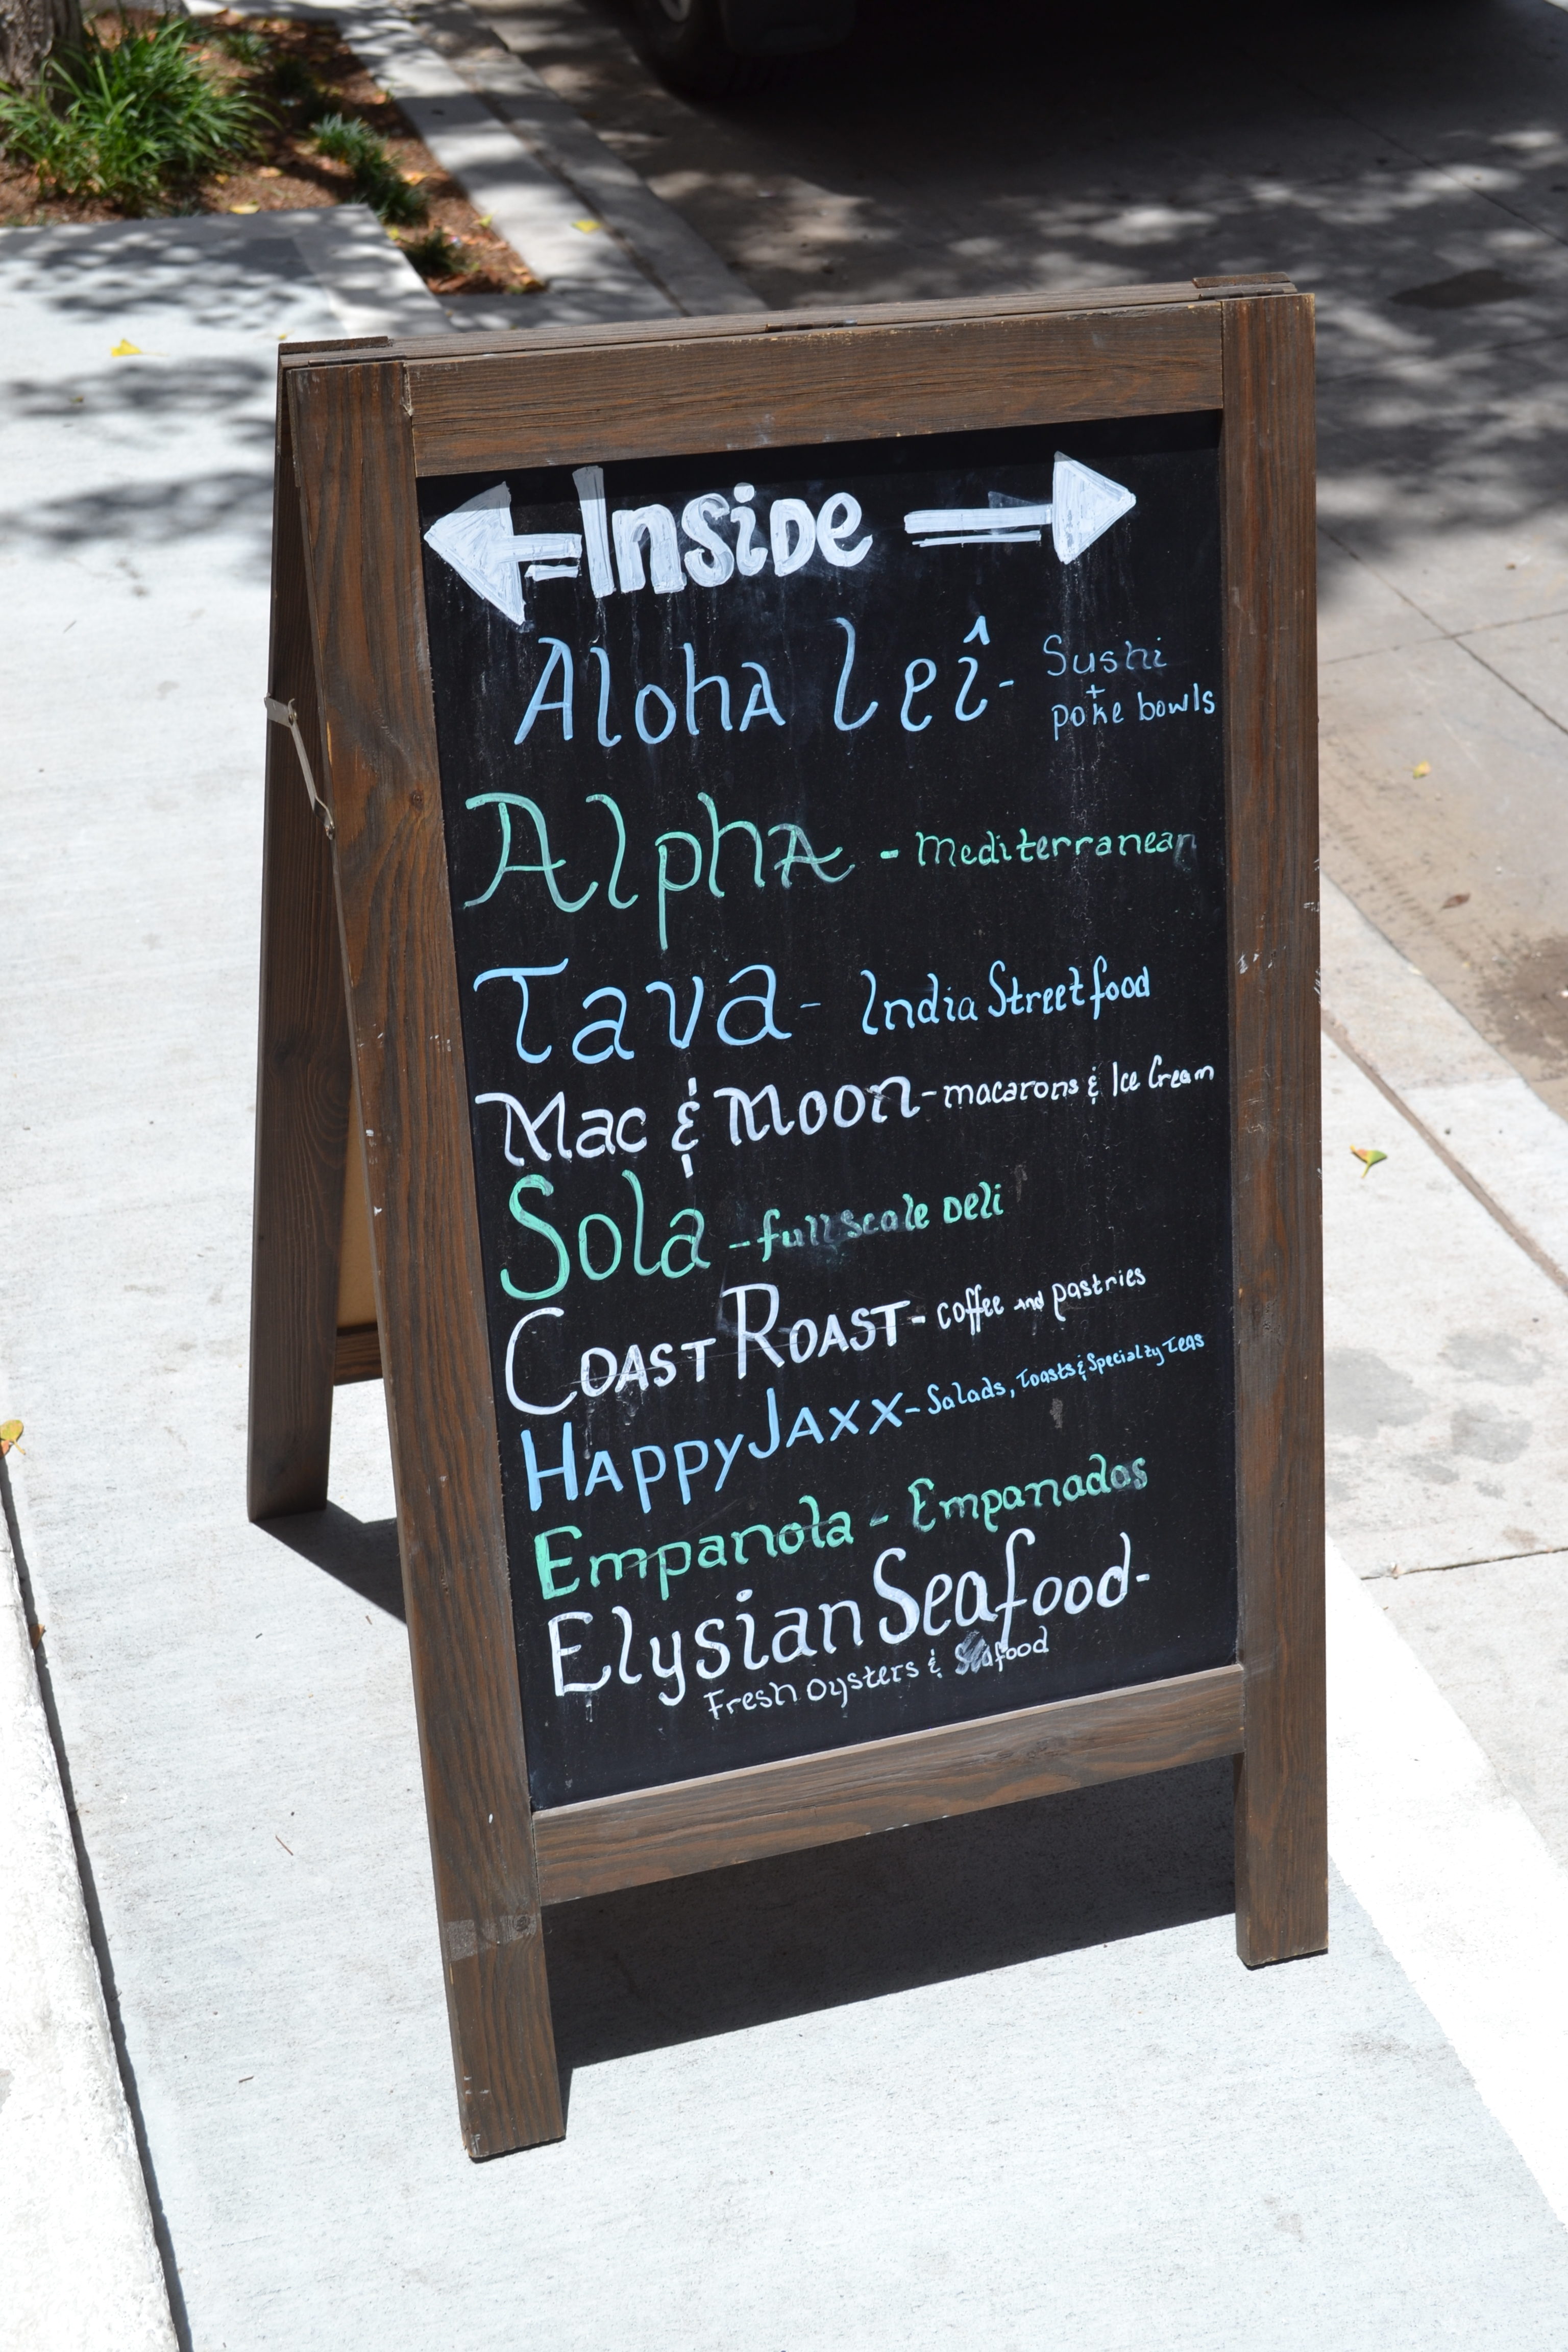 Inside
Aloha leî - Sushi
+
poke bowls
Alpha - Mediterranean
Tava - India Street food
Mac & Moon - macarons & Ice Cream
Sola - full scale Deli
Coast Roast - coffee and pastries
Happy Jaxx - Salads, Toasts & Specialty Teas
Empanola - Empanadas
Elysian Seafood -
Fresh Oysters & Seafood